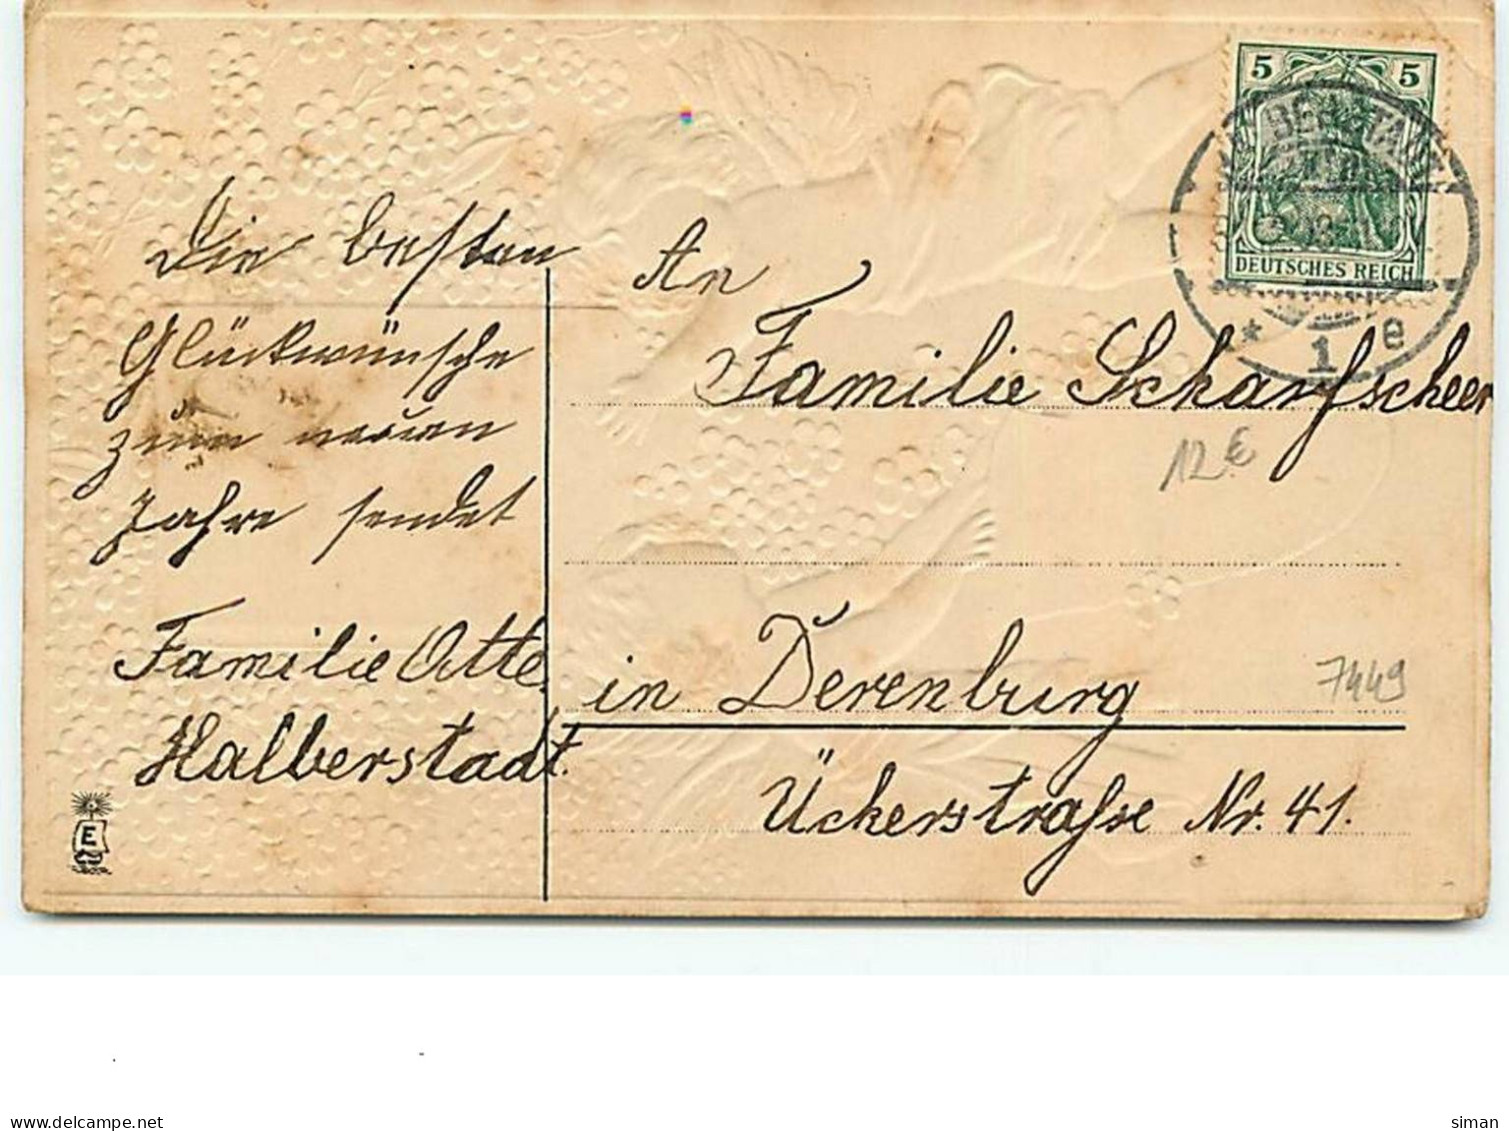 Die besten
Glückwünsche
zum neuen
Jahre sendet
Familie Otte.
Halberstadt.
E
5 5
DEUTSCHES REICH
* 1 e
An
Familie Scharfscheer
12 €
in Derenburg
7449
Ückerstraße Nr. 41.
www.delcampe.net
siman